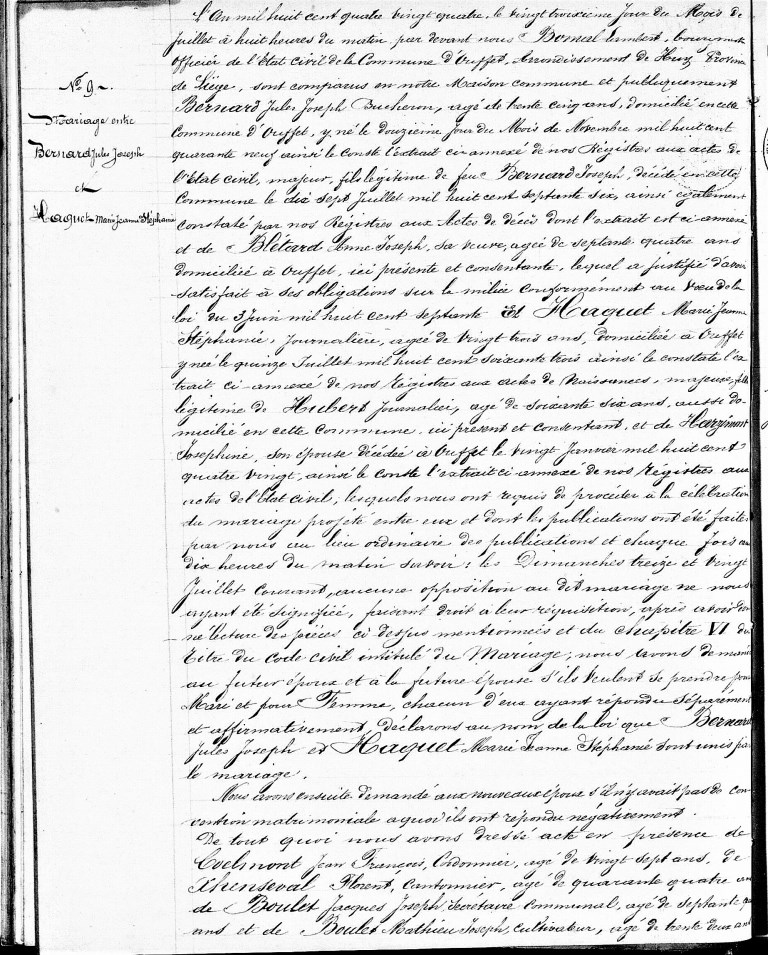 N° 9.
Mariage entre
Bernard Jules Joseph
et
Haquet Marie Jeanne Stéphanie
L'An mil huit cent quatre vingt quatre, le vingt troisième jour du Mois de
Juillet à huit heures du matin, par devant nous Lambert, bourgmestre
Officier de l'Etat Civil de la Commune d'Ouffet, Arrondissement de Huy Province
de Liège, sont comparus en notre Maison commune et publiquement
Bernard Jules Joseph Bucheron, agé de trente cinq ans, domicilié en cette
Commune d'Ouffet, y né le douzième jour du Mois de Novembre mil huit cent
quarante neuf ainsi le conste l'extrait ci-annexé de nos Régistres aux actes de
l'Etat civil, majeur, fils légitime de feu Bernard Joseph, décédé en cette
Commune le dix sept Juillet mil huit cent septante six, ainsi également
constaté par nos Régistres aux Actes de décès dont l'extrait est ci-annexé
et de Blétard Anne Joseph, sa veuve, agée de septante quatre ans
domiciliée à Ouffet, ici présente et consentante, lequel a justifié d'avoir
satisfait à ses obligations sur la milice conformément au vœu de la
loi du 3 Juin mil huit cent septante Et Haquet Marie Jeanne
Stéphanie, Journalière, agée de vingt trois ans, domiciliée à Ouffet
y née le quinze Juillet mil huit cent soixante trois ainsi le constate l'ex
trait ci-annexé de nos régistres aux actes de Naissances, majeure, fille
légitime de Hubert Journalier, agé de soixante six ans, aussi do-
micilié en cette Commune, ici présent et consentant, et de
Josephine, son épouse décédée à Ouffet le vingt Janvier mil huit cent
quatre vingt, ainsi le conste l'extrait ci-annexé de nos régistres aux
actes de l'Etat civil, lesquels nous ont requis de procéder à la célébration
du mariage projeté entre eux et dont les publications ont été faites
par nous au lieu ordinaire des publications et chaque fois à
dix heures du matin savoir: les Dimanches treize et vingt
Juillet courant, aucune opposition au dit mariage ne nous
ayant été signifiée, faisant droit à leur réquisition, après avoir don
né lecture des pièces ci dessus mentionnées et du chapitre VI du
Titre du Code civil intitulé du Mariage, nous avons demandé
au futur époux et à la future épouse s'ils veulent se prendre pour
Mari et pour Femme, chacun d'eux ayant répondu séparément
et affirmativement, déclarons au nom de la loi que Bernard
Jules Joseph et Haquet Marie Jeanne Stéphanie sont unis par
le mariage.
Nous avons ensuite demandé aux nouveaux époux s'il n'y avait pas de con
vention matrimoniale a quoi ils ont répondu négativement.
De tout quoi nous avons dressé acte en présence de
Coelmont Jean François, Cordonnier, agé de vingt sept ans, de
Florent, Cantonnier, agé de quarante quatre ans
de Boulet Jacques Joseph, Secrétaire communal, agé de septante
ans et de Boulet Mathieu Joseph, cultivateur, agé de trente deux ans